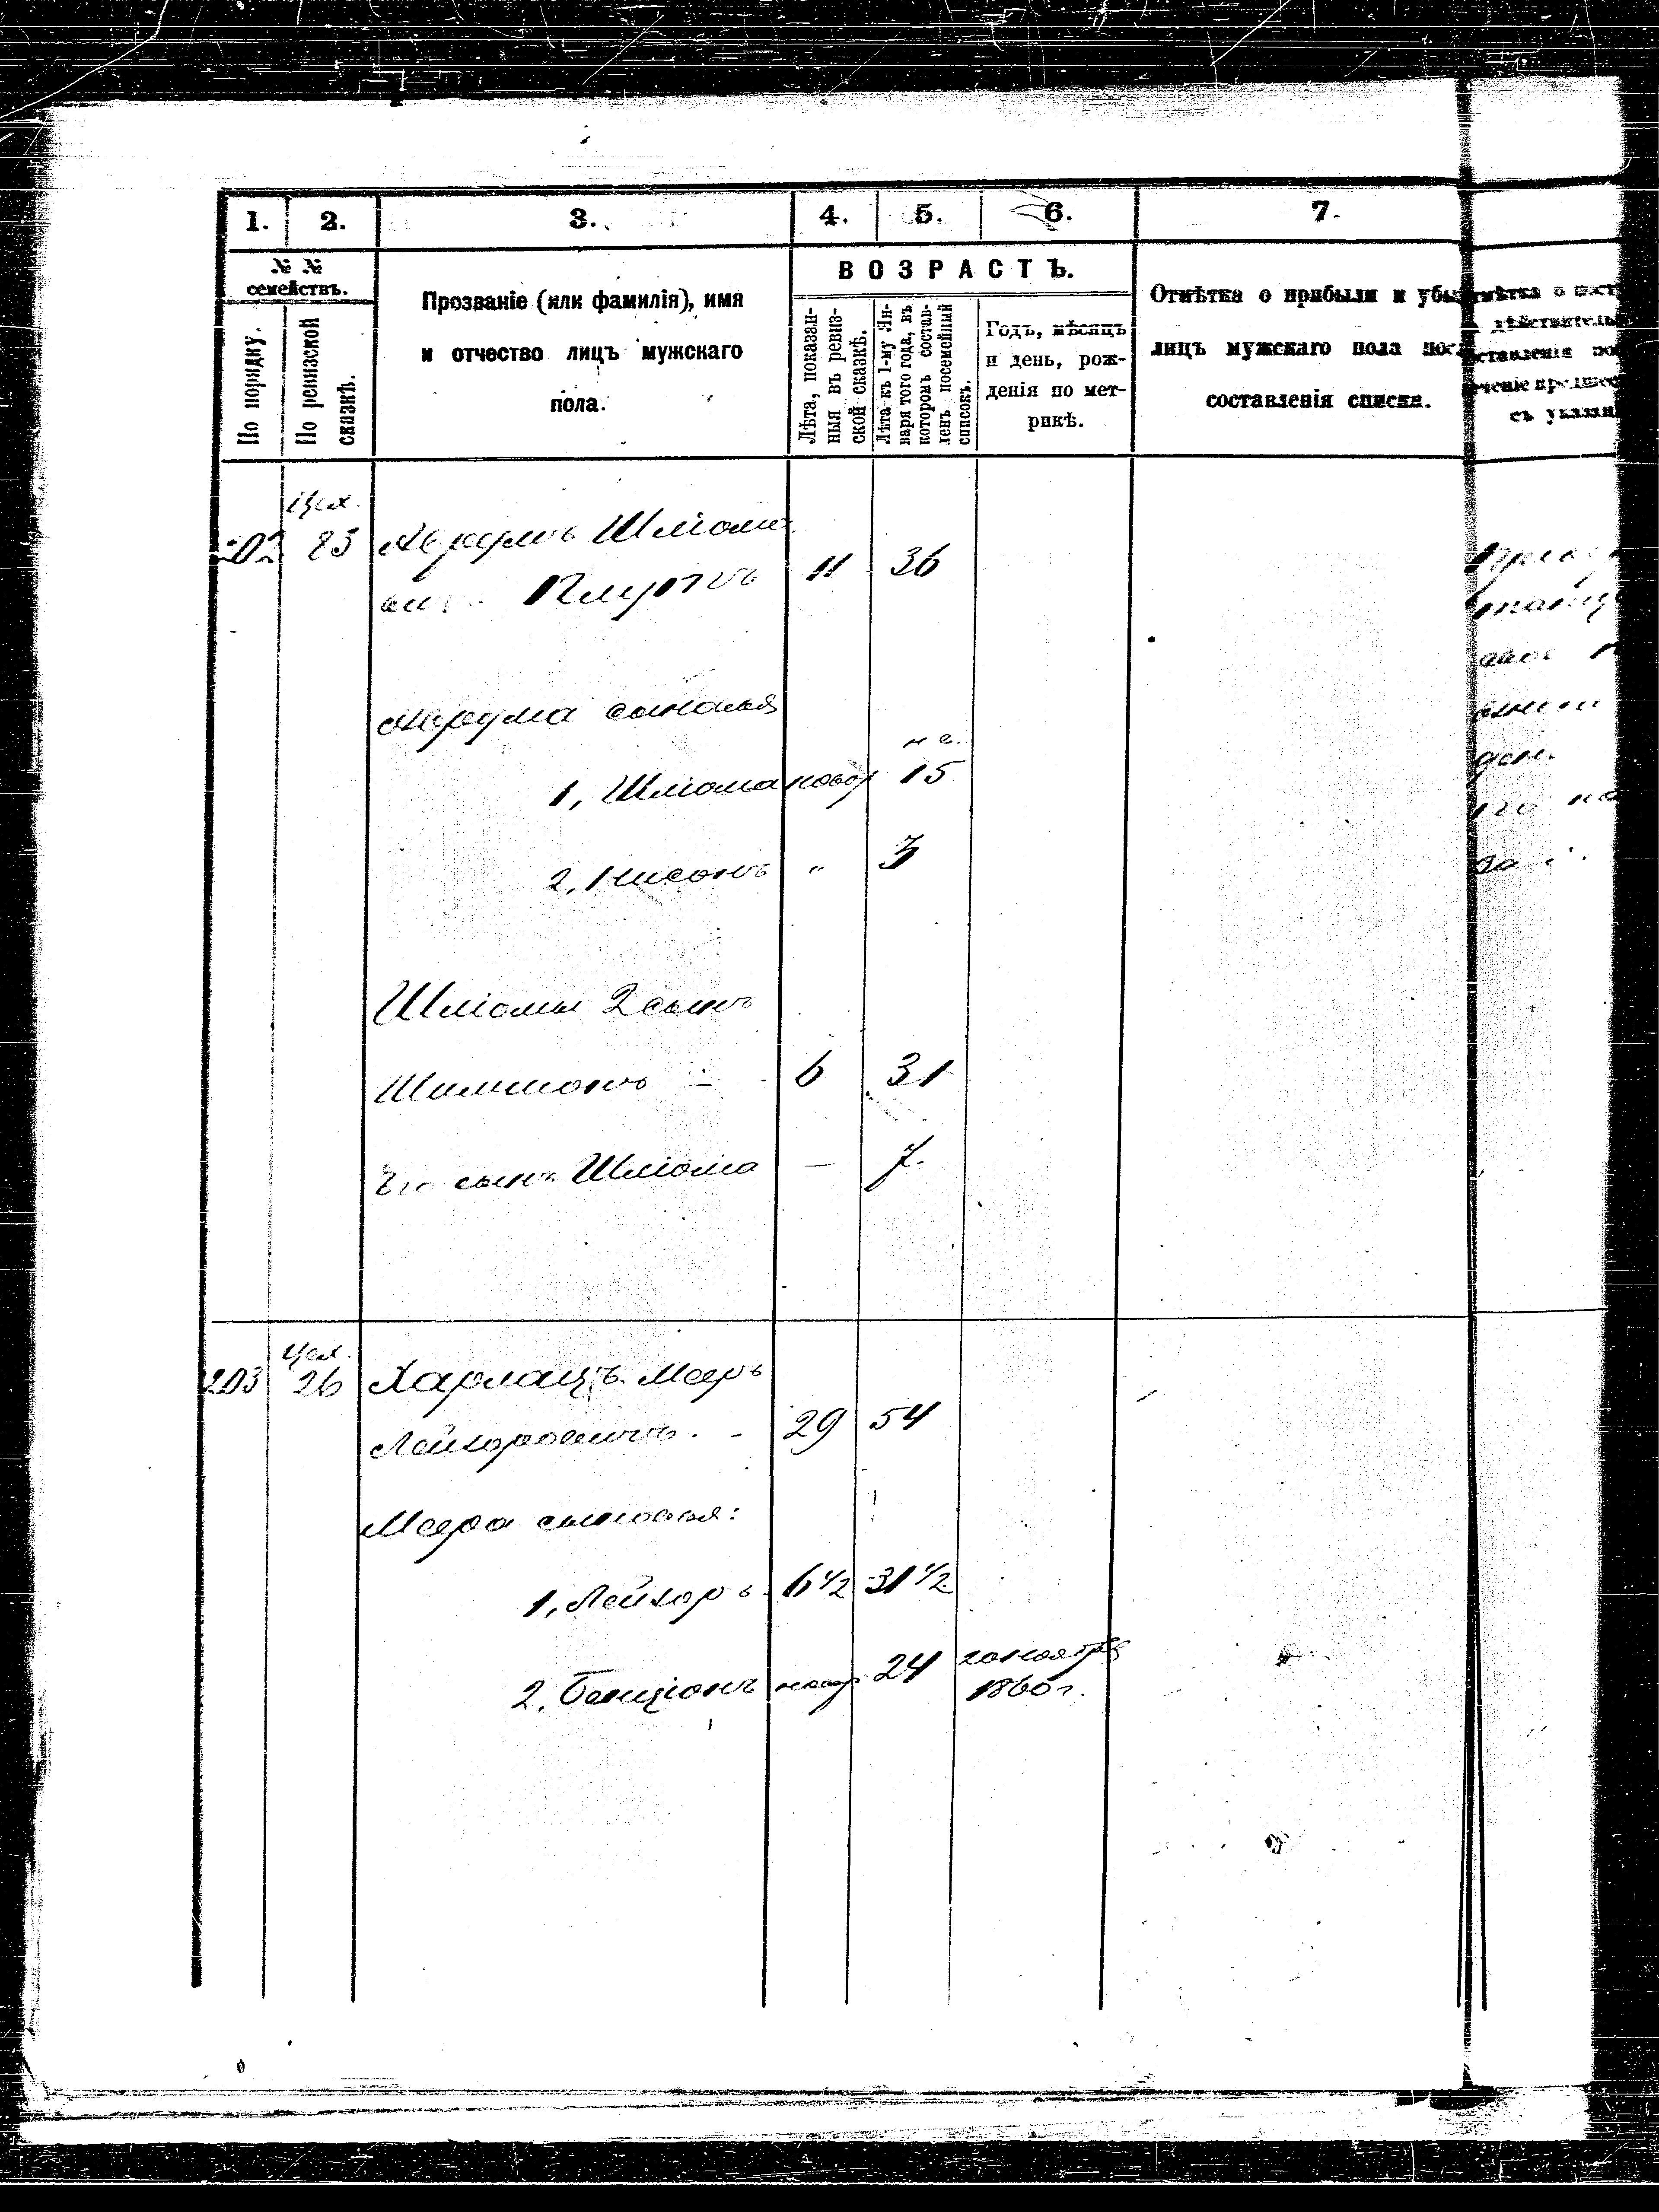 1. 2. 3. 4. 5. 6. 7.
№ №
семействъ.
По порядку.
По ревизской
сказкѣ.
Прозваніе (или фамилія), имя
и отчество лицъ мужскаго
пола.
ВОЗРАСТЪ.
Лѣта, показан-
ныя въ ревиз-
ской сказкѣ.
Лѣта къ 1-му Ян-
варя того года, въ
которомъ состав-
ленъ посемейный
списокъ.
Годъ, мѣсяцъ
и день, рож-
денія по мет-
рикѣ.
Отмѣтка о прибыли и убы
лицъ мужскаго пола пос
составленія списка.
Цех.
202 Аврумъ Шліоми
11 36
Аврума сыновья
1, Шліома новор 15
2, Нисонъ " 3
Шліомы 2 сынъ
Шимшонъ - 6 31
Его сынъ Шліома — 7.
Цех.
203 26 Харлацъ Мееръ
Лейзоровичъ. - 29 54
Меера сыновья:
1, Лейзоръ 6 1/2 31 1/2
2, Бенціонъ новор 24 ноября
1860 г.